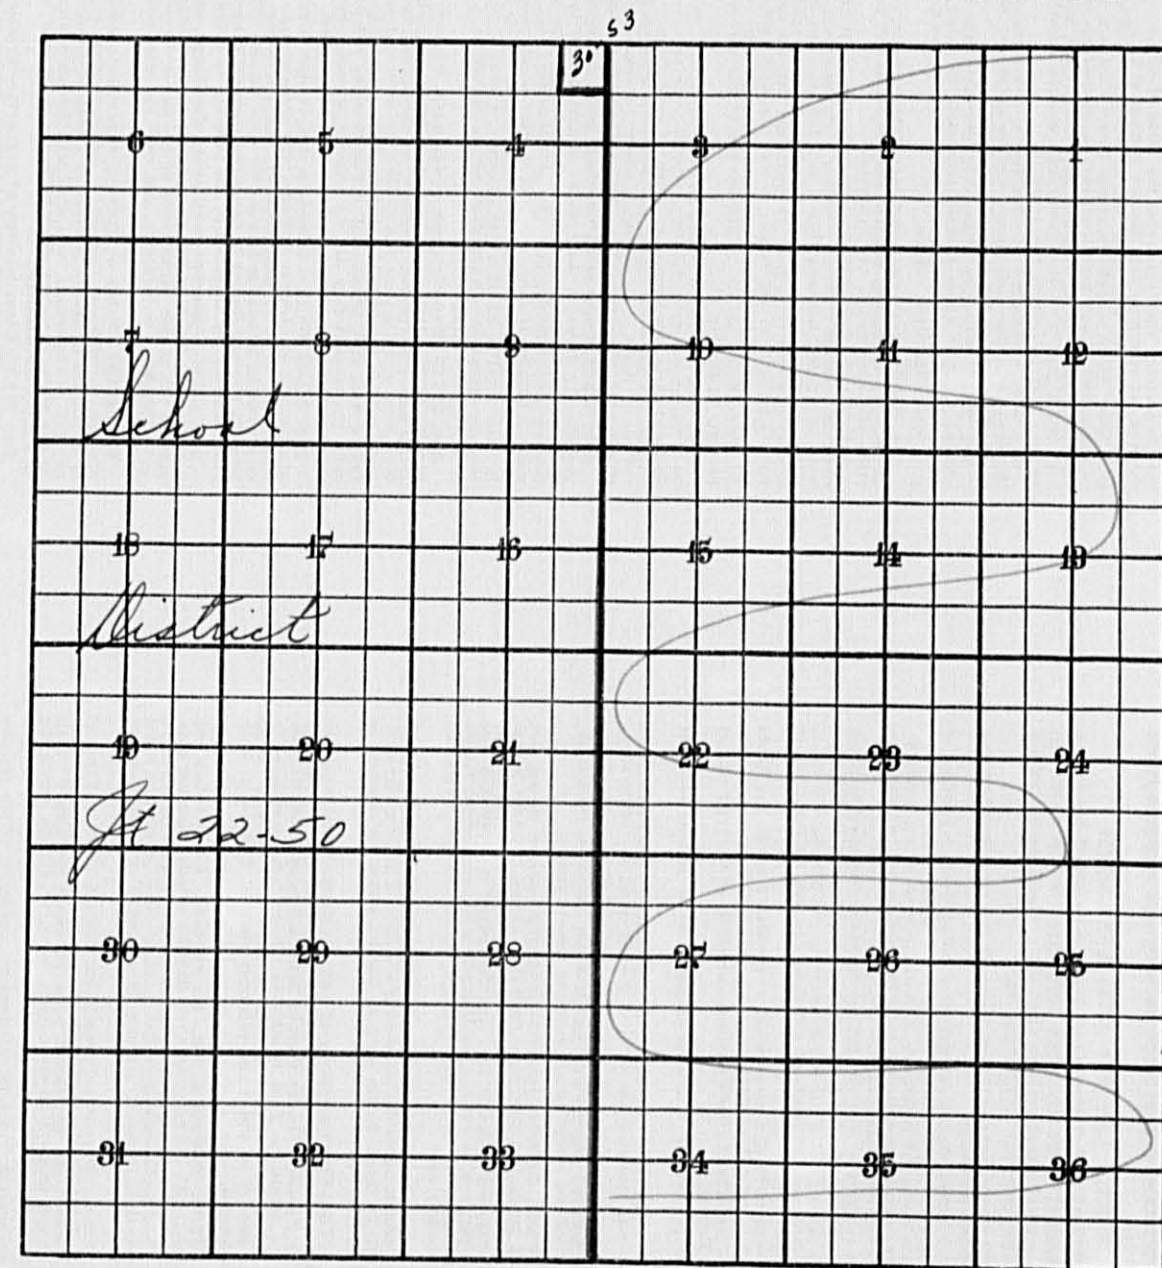 s 3
30
6 5 4 3 2 1
7 8 9 10 11 12
School
18 17 16 15 14 13
District
19 20 21 22 23 24
Jt 22-50
30 29 28 27 26 25
31 32 33 34 35 36